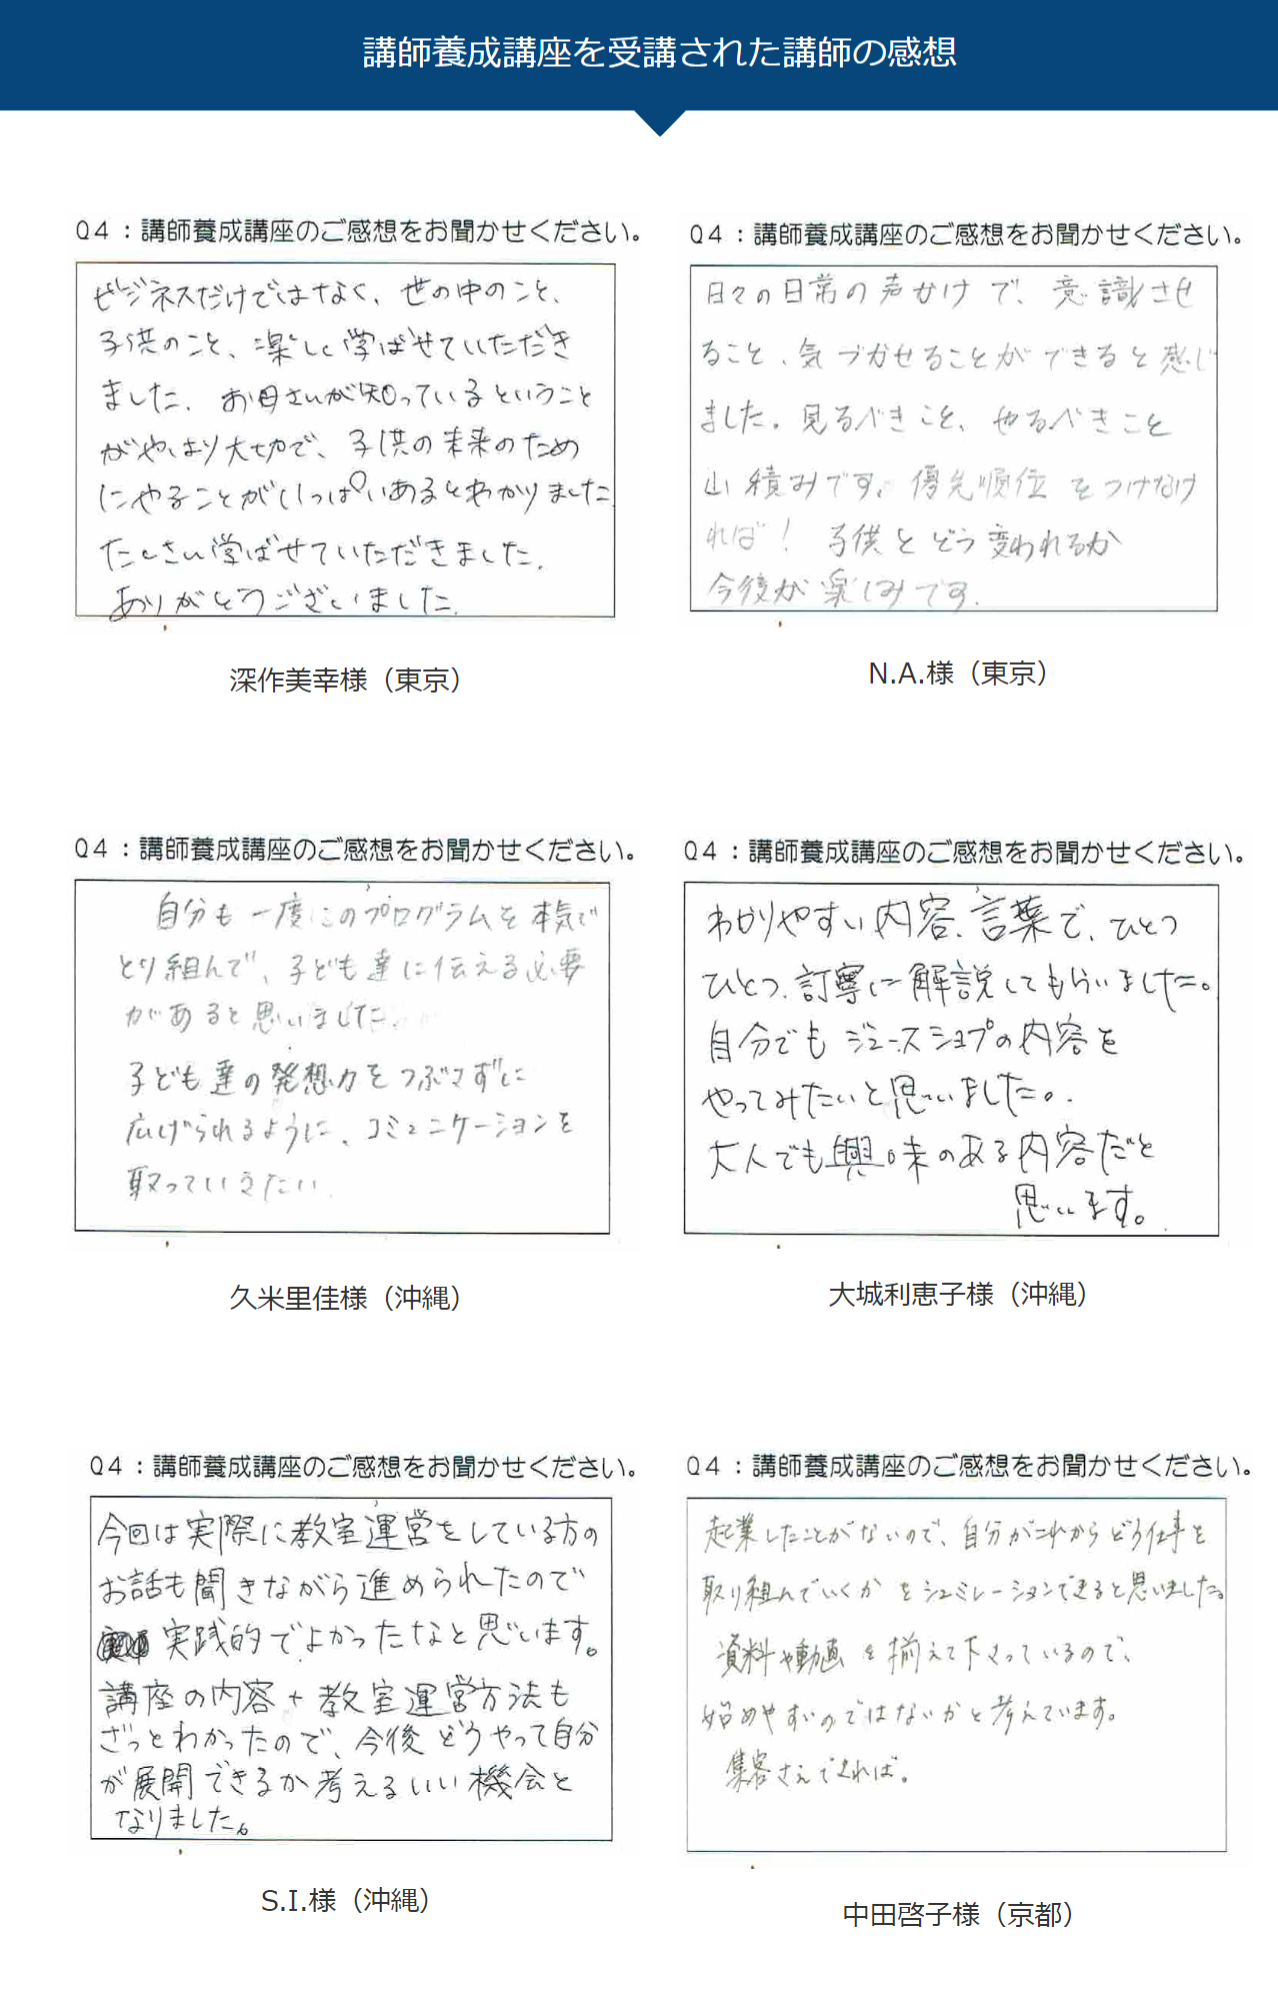 講師養成講座を受講された講師の感想
Q4：講師養成講座のご感想をお聞かせください。
ビジネスだけではなく、世の中のこと、
子供のこと、楽しく学ばせていただき
ました。お母さんが知っているということ
がやはり大切で、子供の未来のため
にやることがいっぱいあるとわかりました。
たくさん学ばせていただきました。
ありがとうございました。
深作美幸様（東京）
Q4：講師養成講座のご感想をお聞かせください。
日々の日常の声かけで、意識させ
ること、気づかせることができると感じ
ました。見るべきこと、やるべきこと
山積みです。優先順位をつけなけ
れば！子供とどう変われるか
今後が楽しみです。
N.A.様（東京）
Q4：講師養成講座のご感想をお聞かせください。
自分も一度このプログラムを本気で
とり組んで、子ども達に伝える必要
があると思いました。
子ども達の発想力をつぶさずに
広げられるように、コミュニケーションを
取っていきたい。
久米里佳様（沖縄）
Q4：講師養成講座のご感想をお聞かせください。
わかりやすい内容、言葉で、ひとつ
ひとつ、訂寧に解説してもらいました。
自分でもジュースショプの内容を
やってみたいと思いました。
大人でも興味のある内容だと
思います。
大城利恵子様（沖縄）
Q4：講師養成講座のご感想をお聞かせください。
今回は実際に教室運営をしている方の
お話も聞きながら進められたので
実践的でよかったなと思います。
講座の内容＋教室運営方法も
ざっとわかったので、今後どうやって自分
が展開できるか考えるいい機会と
なりました。
S.I.様（沖縄）
Q4：講師養成講座のご感想をお聞かせください。
起業したことがないので、自分がこれからどう仕事を
取り組んでいくかをシュミレーションできると思いました。
資料や動画を揃えて下さっているので、
始めやすいのではないかと考えています。
集客さえできれば。
中田啓子様（京都）